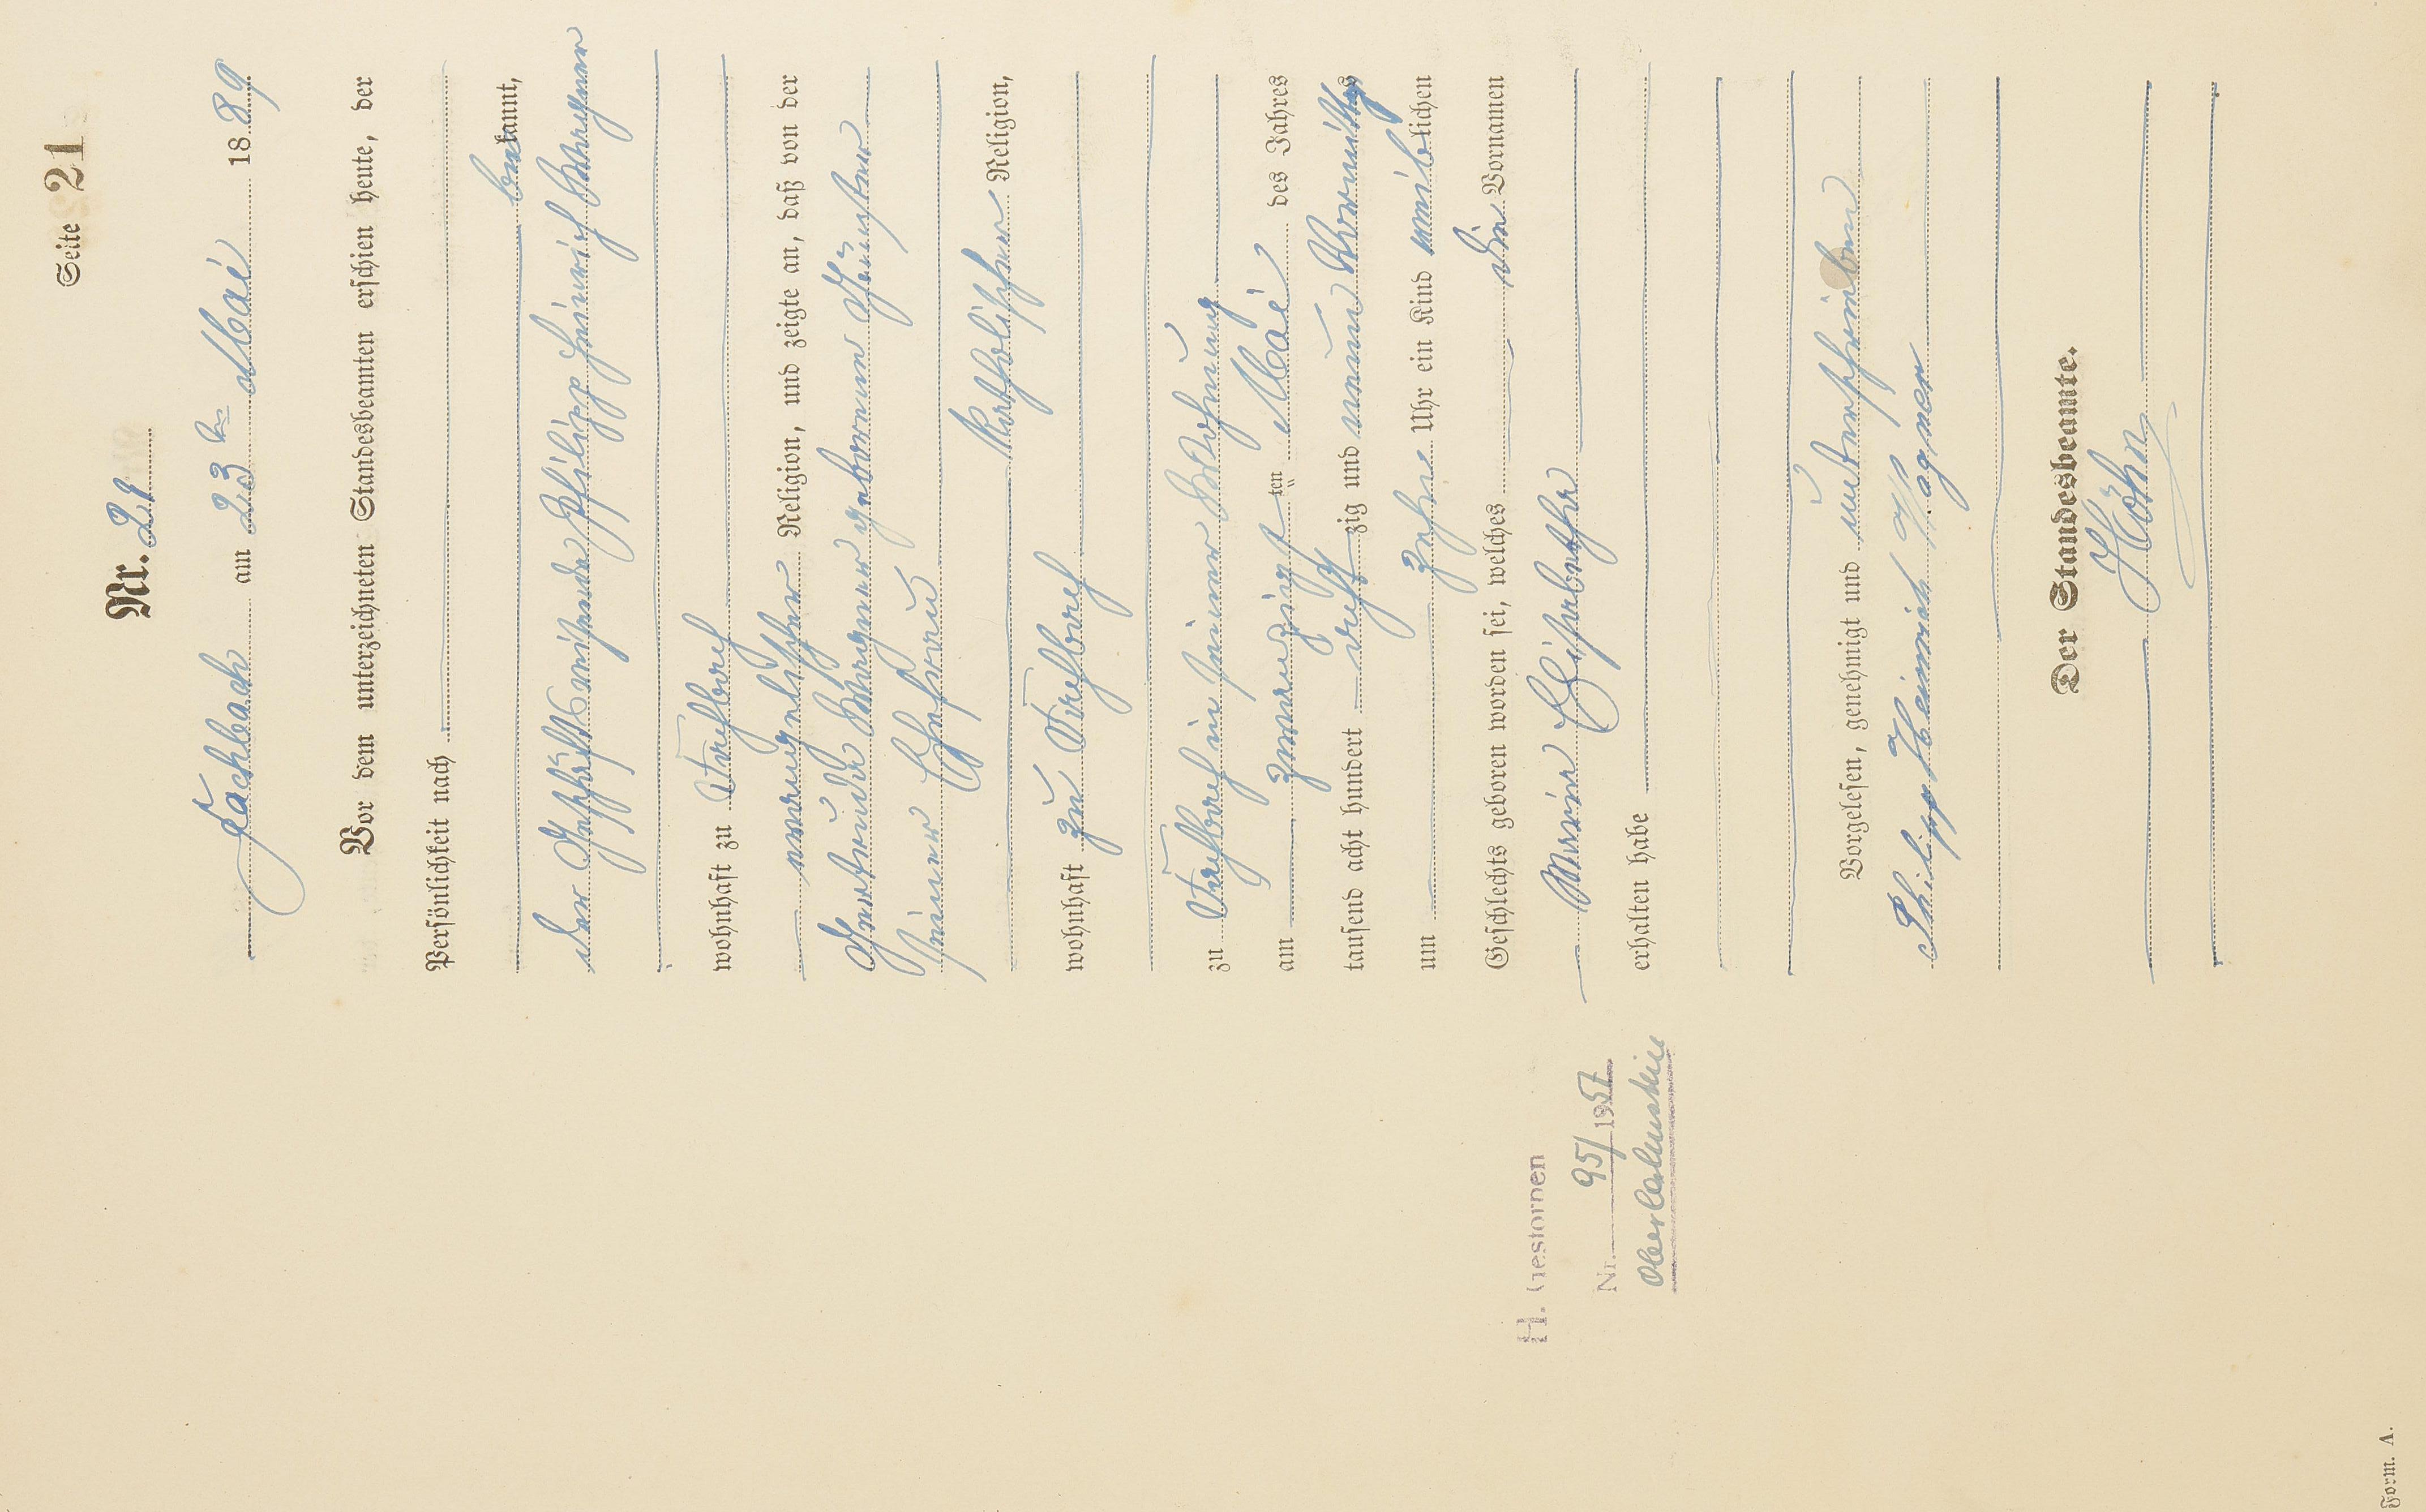 Seite 21
Nr. 21
Fachbach am 23ten Mai 1889
Vor dem unterzeichneten Standesbeamten erschien heute, der
Persönlichkeit nach
bekannt,
der Geschäftsreisende Philipp Heinrich Wagner
wohnhaft zu Fachbach
evangelischer Religion, und zeigte an, daß von der
Gertrude Wagner geborenen
seiner Ehefrau
katholischer Religion,
wohnhaft zu Fachbach
zu Fachbach in seiner Wohnung
am zwanzigsten Mai des Jahres
tausend acht hundert achtzig und neun Vormittags
um zehn Uhr ein Kind weiblichen
Geschlechts geboren worden sei, welches die Vornamen
Maria Elisabetha
erhalten habe
Vorgelesen, genehmigt und unterschrieben
Philipp Heinrich Wagner
Der Standesbeamte.
Höhn
H. Gestorben
Nr. 95/1957
Oberlahnstein
Form. A.